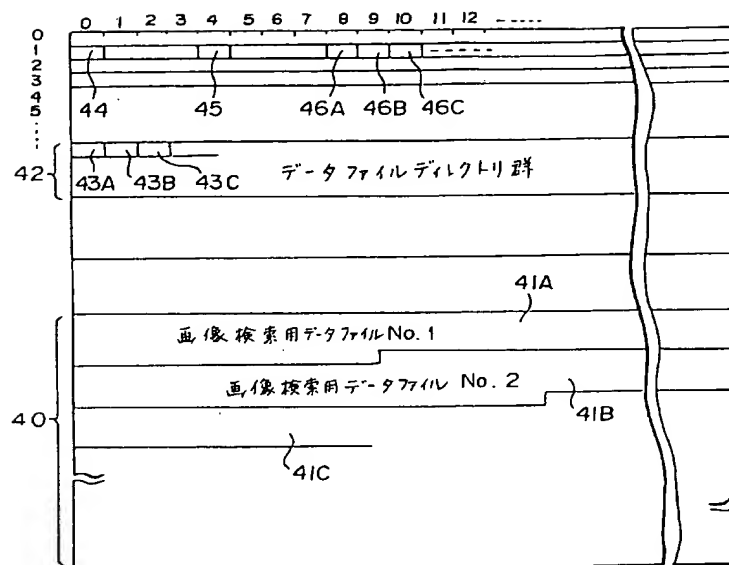 0 1 2 3 4 5 6 7 8 9 10 11 12
0
1
2
3
4
5
44 45 46A 46B 46C
42
43A 43B 43C データファイルディレクトリ群
41A
画像検索用データファイルNo.1
画像検索用データファイル No. 2
40
41B
41C